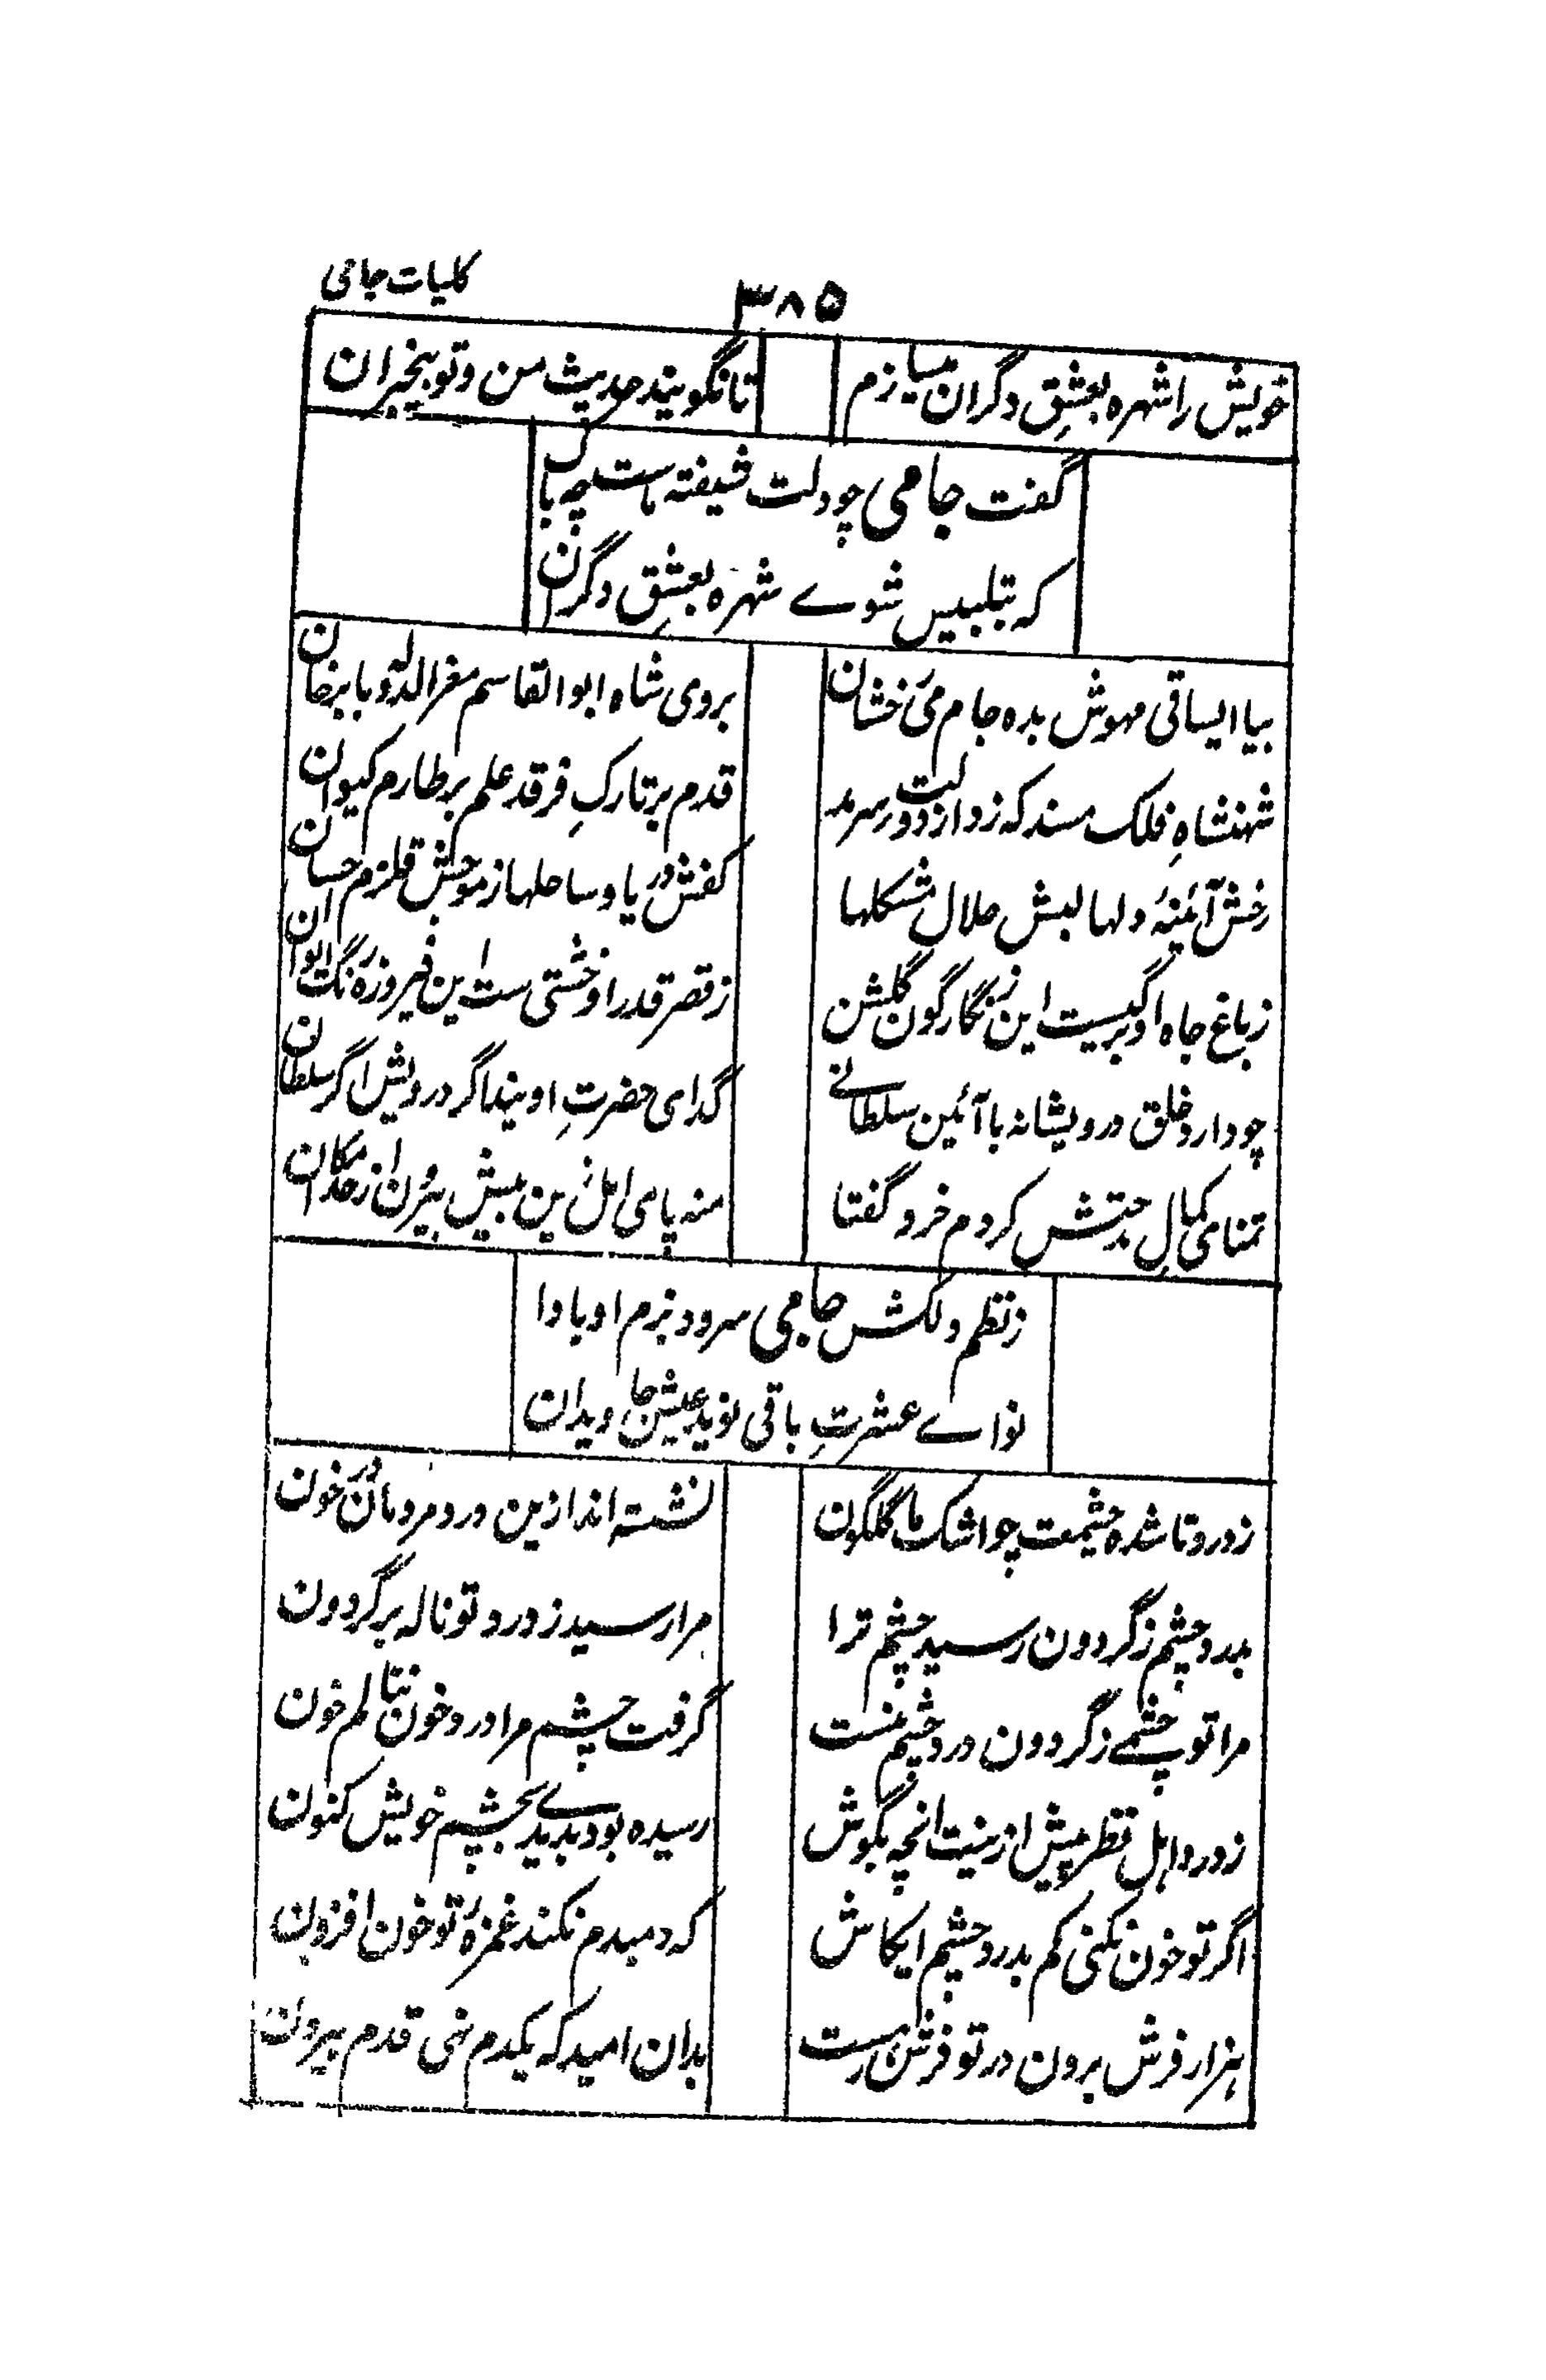 کلیات جامی
۳۸۵
خویش را شهره بعشقِ دگران میسازم
تا نگویند حدیث من و تو بیخبران
گفت جامی چو دلت شیفته ماست چه باک
که بتلبیس شوے شهره بعشقِ دگران
بیا ایساقی مهوش بده جام میِ رخشان
بروی شاه ابوالقاسم معزالدوله بابرخان
شهنشاهِ فلک مسند که زد از دولت سرمد
قدم بر تارکِ فرقد علم بر طارم کیوان
رخش آئینهٔ دلها لبش حلال مشکلها
کفش دریا و ساحلها ز موجش قلزم احسان
ز باغ جاه او برگیست این زنگارگون گلشن
ز قصر قدر او خشتی ست این فیروزه رنگ ایوان
چو دارد خلق درویشانه با آئین سلطانے
گدای حضرتِ اویند اگر درویش اگر سلطان
تمنای کمالِ مدحتش کردم خرد گفتا
منه پای امل زین بیش بیرون از حد امکان
ز نظم دلکش جامی سرود بزم او بادا
نواے عشرتِ باقی نوید عیش جاویدان
ز درد تا شده چشمت چو اشک ما گلگون
نشسته اند ازین درد مردمان در خون
بدرد چشم ز گردون رسید چشم ترا
مرا رسید ز درد تو ناله بر گردون
مرا تو چشمے ز گردون درد چشم منست
گرفت چشم مرا درد خون ننالم خون
ز درد اهل نظر پیش ازینت انچه بگوش
رسیده بود بدیدے بچشم خویش کنون
اگر تو خون نکنی کم بدرد چشم ایکاش
که دمبدم نکند غمزهٔ تو خون افزون
هزار فرش برون در تو فرش رهست
بدان امید که یکدم نهی قدم بیرون